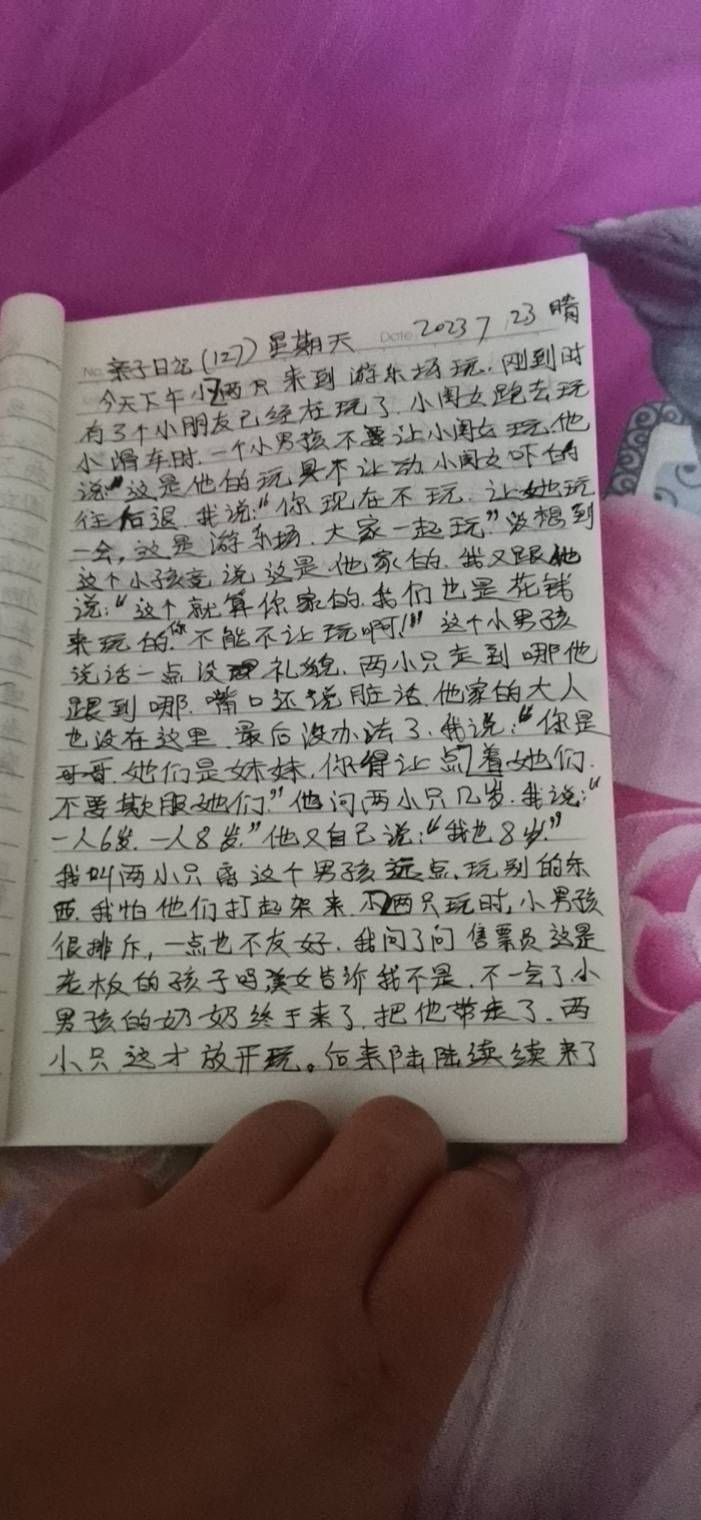 亲子日记(127) 星期天 Date 2023 7 23 晴
今天下午小两只来到游乐场玩.刚到时
有3个小朋友已经在玩了.小闺女跑去玩
小滑车时.一个小男孩不要让小闺女玩.他
说"这是他的玩具不让动小闺女吓的
往后退.我说:"你现在不玩.让她玩
一会,这是游乐场.大家一起玩"没想到
这个小孩竟说这是他家的.我又跟他
说:"这个就算你家的.我们也是花钱
来玩的."不能不让玩啊!"这个小男孩
说话一点没礼貌.两小只走到哪他
跟到哪.嘴口还说脏话.他家的大人
也没在这里.最后没办法了.我说:"你是
哥哥.她们是妹妹.你得让点着她们.
不要欺服她们."他问两小只几岁.我说:"
一人6岁.一人8岁."他又自己说:"我也8岁."
我叫两小只离这个男孩远点.玩别的东
西.我怕他们打起架来.两只玩时,小男孩
很排斥,一点也不友好.我问了问售票员这是
老板的孩子吗美女告诉我不是.不一会了小
男孩的奶奶终于来了.把他带走了.两
小只这才放开玩。后来陆陆续续来了